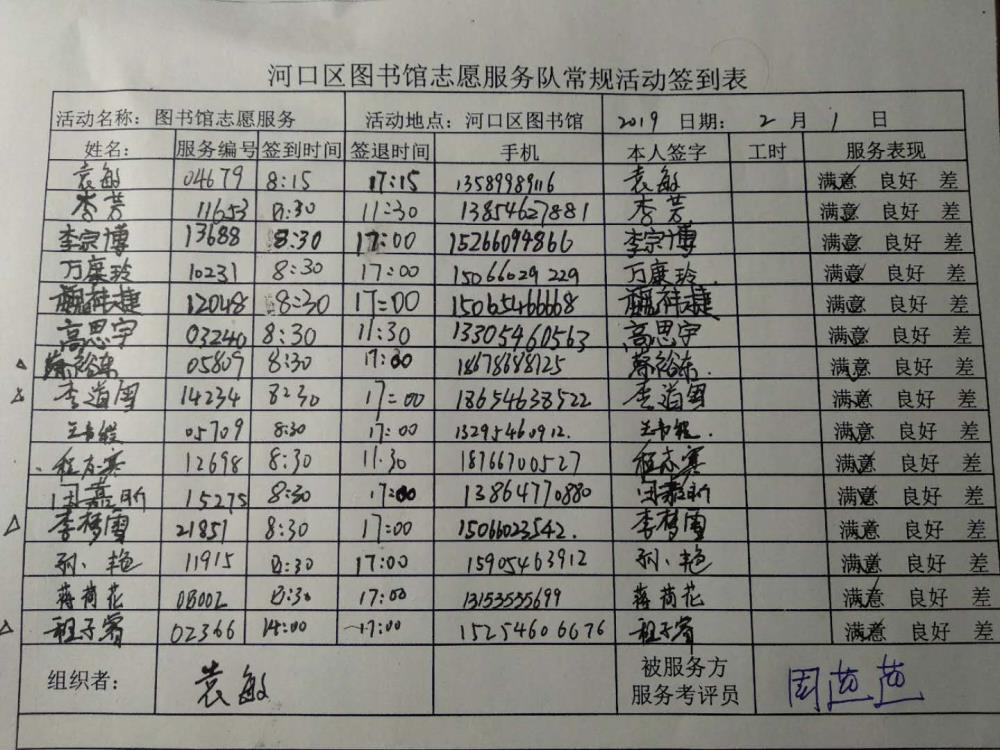 河口区图书馆志愿服务队常规活动签到表
活动名称：图书馆志愿服务 活动地点：河口区图书馆 2019 日期： 2 月 1 日
姓名： 服务编号 签到时间 签退时间 手机 本人签字 工时 服务表现
袁敏 04679 8:15 17:15 13589989116 袁敏 满意 良好 差
李芳 11653 8:30 11:30 13854627881 李芳 满意 良好 差
李宗博 13688 8:30 17:00 15266094866 李宗博 满意 良好 差
万康玲 10231 8:30 17:00 15066029229 万康玲 满意 良好 差
12048 8:30 17:00 15065466668 满意 良好 差
高思宇 03240 8:30 11:30 13305460563 高思宇 满意 良好 差
05807 8:30 17:00 18678688725 满意 良好 差
李道雪 14234 8:30 17:00 18654638522 李道雪 满意 良好 差
05709 8:30 17:00 13295460912. 满意 良好 差
12698 8:30 11:30 18766700527 满意 良好 差
15275 8:30 17:00 13864770880 满意 良好 差
李梦雪 21851 8:30 17:00 15066023542. 李梦雪 满意 良好 差
孙艳 11915 8:30 17:00 15905463912 孙艳 满意 良好 差
蒋荷花 08002 8:30 17:00 13153535699 蒋荷花 满意 良好 差
02366 14:00 17:00 15254606676 满意 良好 差
组织者： 袁敏 被服务方
服务考评员 周茜茜